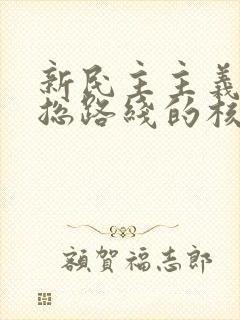 新民主主義
総路綫的核
額賀福志郎